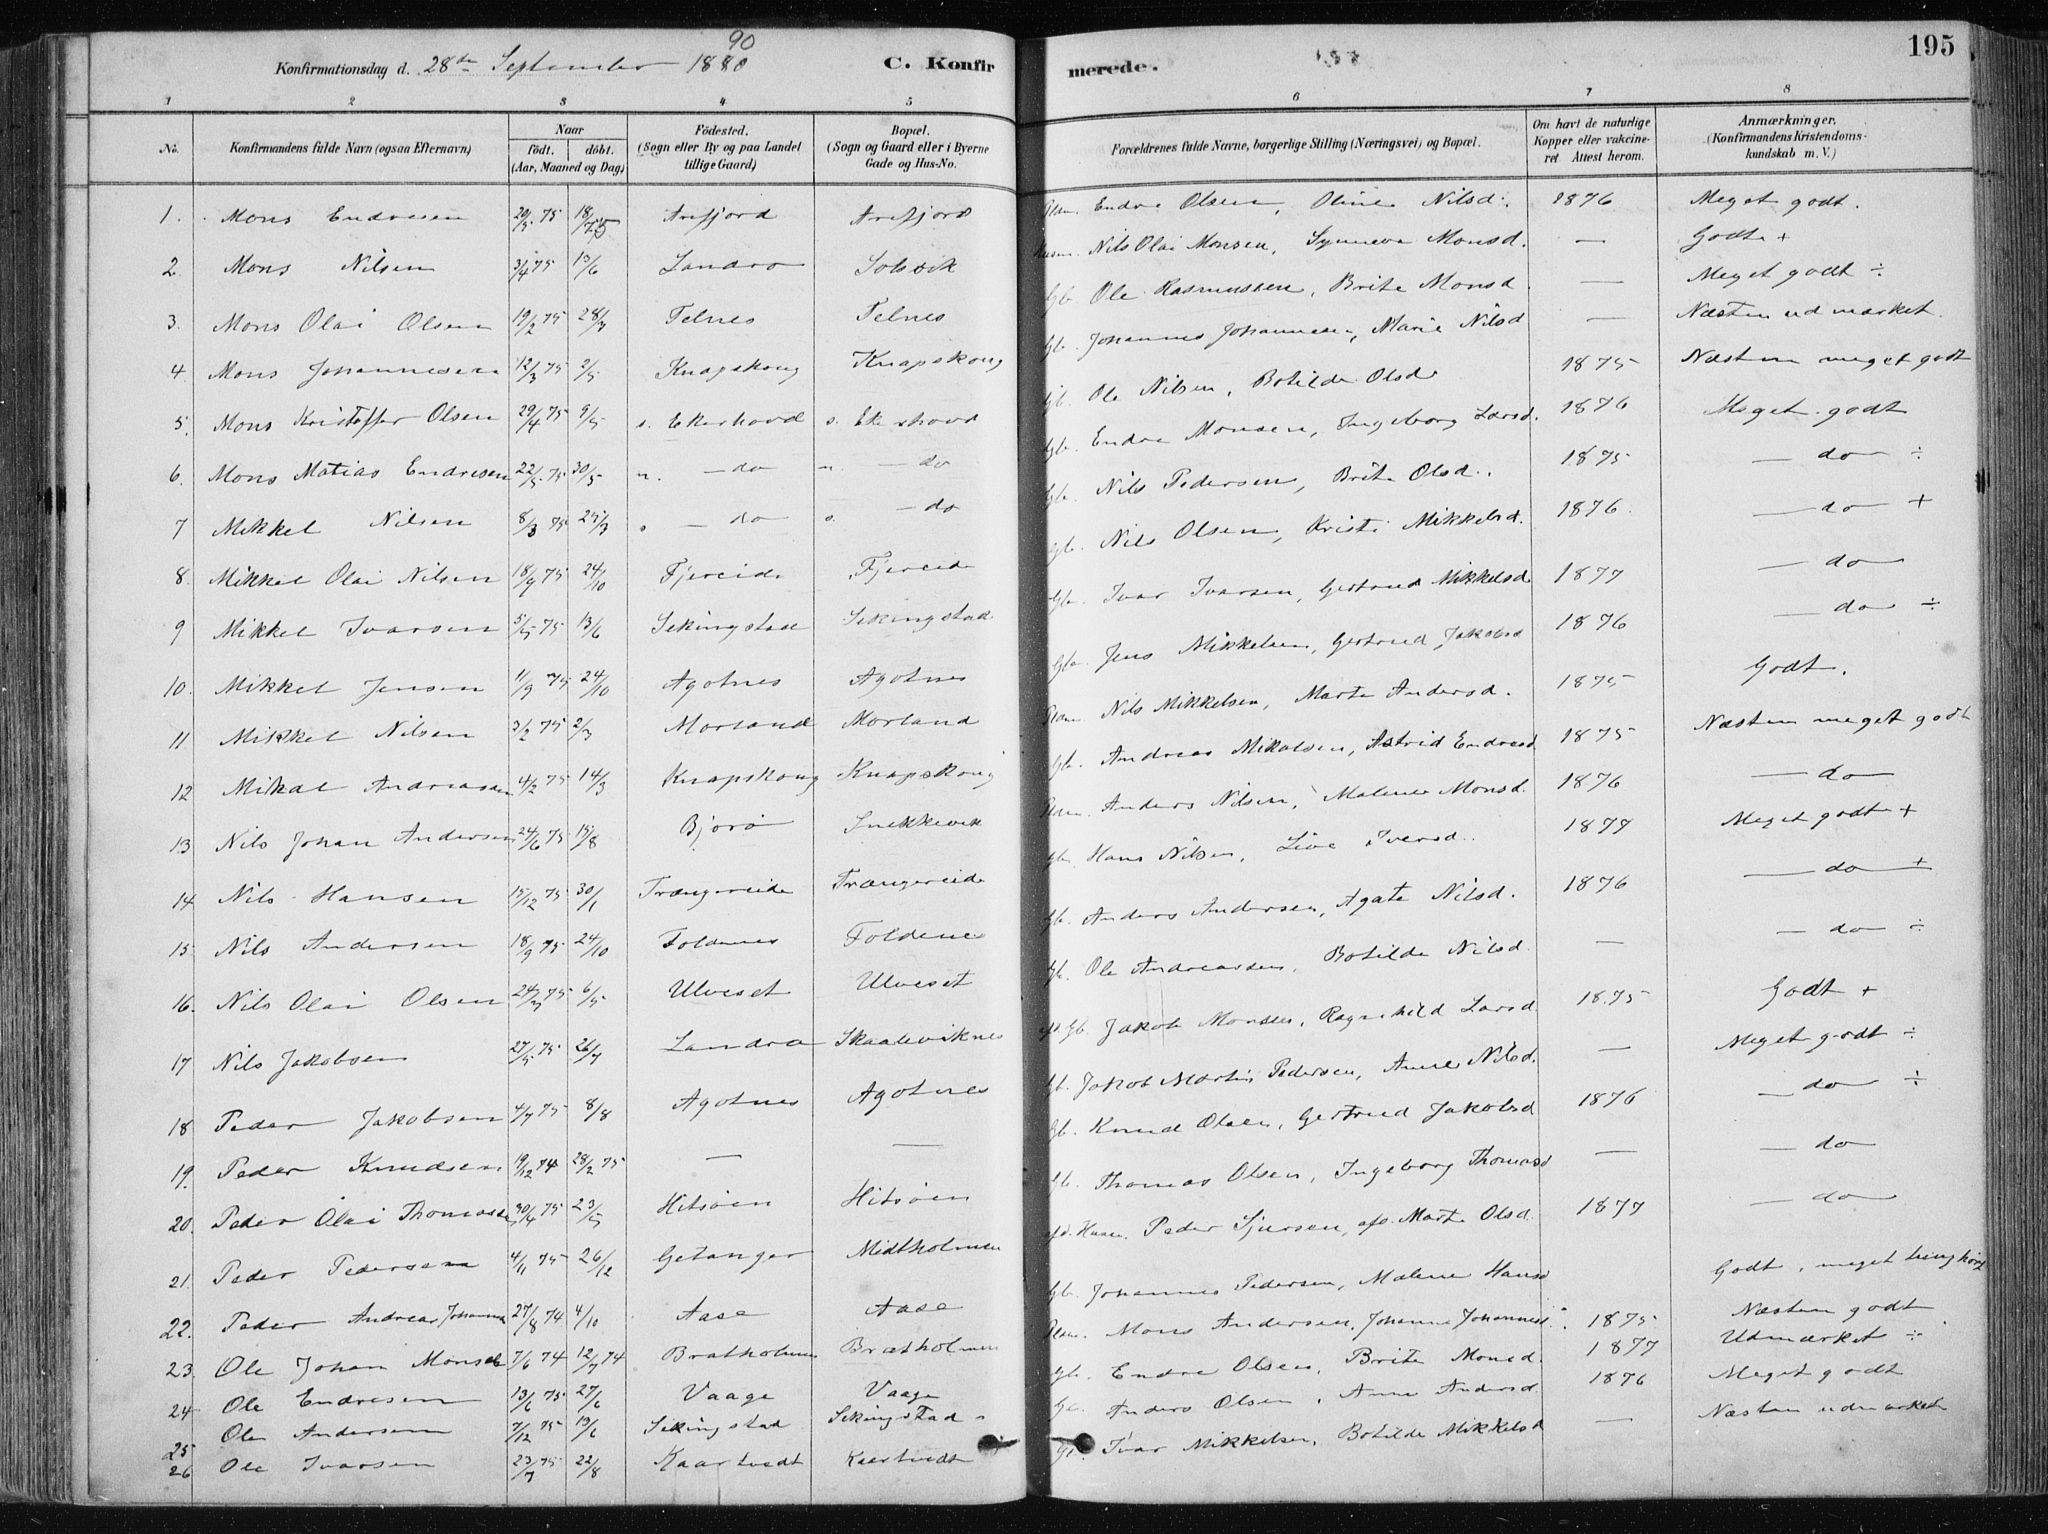 195
Konfirmationsdag d. 28de September 1880 90 C. Konfirmerede.
1 2 3 4 5 6 7 8
No. Konfirmandens fulde Navn (ogsaa Efternavn) Naar födt. döbt. (Aar, Maaned og Dag) Födested. (Sogn eller By og paa Landet tillige Gaard) Bopæl. (Sogn og Gaard eller i Byerne Gade og Hus-No. Forældrenes fulde Navne, borgerlige Stilling (Næringsvei) og Bopæl. Om havt de naturlige Kopper eller vakcineret Attest herom. Anmærkninger. (Konfirmandens Kristendomskundskab m. V.)
1. Mons Endresen 20/5 75 18/7 75 Arefjord Arefjord Endre Olsen, Oline Nilsd. 1876 Meget godt.
2. Mons Nilsen 3/4 75 13/6 Landro Solsvik Husm. Nils Olai Monsen, Synneva Monsd. — Godt +
3. Mons Olai Olsen 19/2 75 28/3 Telnes Telnes Gb. Ole Rasmussen, Brite Monsd. — Meget godt ÷
4. Mons Johannesen 12/3 75 2/5 Knapskong Knapskong Gb. Johannes Johannesen, Marie Nilsd — Næsten udmærket.
5. Mons Kristoffer Olsen 29/4 75 9/5 s. Ekerhovd s. Ekerhovd Gb. Ole Nilsen, Botilde Olsd. 1875 Næsten meget godt
6. Mons Matias Endresen 22/5 75 30/5 " — do " — do Gb. Endre Monsen, Ingeborg Larsd. 1876 Meget godt
7 Mikkel Nilsen 8/3 75 29/3 s — do s. — do Gb. Nils Pedersen, Brite Olsd. 1875 — do ÷
8. Mikkel Olai Nilsen 18/9 75 24/10 Fjereide Fjereide Gb. Nils Olsen, Kristi Mikkelsd. 1876. — do +
9 Mikkel Ivarsen 5/5 75 13/6 Sekingstad Sekingstad Gb. Ivar Ivarsen, Gertrud Mikkelsd. 1877 — do
10. Mikkel Jensen 11/9 75 24/10 Agotnes Agotnes Gb. Jens Mikkelsen, Gertrud Jakobsd 1876 — do ÷
11 Mikkel Nilsen 3/2 75 2/3 Morland Morland Nils Mikkelsen, Marte Andersd. 1875 Godt.
12 Mikal Andreassen 4/2 75 14/3 Knapskong Knapskong Gb. Andreas Mikalsen, Astrid Endresd 1875 Næsten meget godt
13 Nils Johan Andersen 24/6 75 15/8 Bjorö Snekkevik Anders Nilsen, Malene Monsd. 1876 — do
14 Nils Hansen 15/12 75 30/1 Trængereide Trængereide Gb. Hans Nilsen, Live Iversd. 1877 Meget godt +
15 Nils Andersen 18/9 75 24/10 Foldnes Foldnes Gb. Anders Andersen, Agate Nilsd. 1876 — do +
16. Nils Olai Olsen 24/3 75 6/5 Ulveset Ulveset Gb. Ole Andreassen, Botilde Nilsd. — — do ÷
17 Nils Jakobsen 27/5 75 26/7 Landro Skaaleviknes Gb. Jakob Monsen, Ragnhild Larsd. 1875 Godt +
18 Peder Jakobsen 4/7 75 8/8 Agotnes Agotnes Gb. Jakob Martin Pedersen, Anne Nilsd. — Meget godt ÷
19. Peder Knudsen 19/12 74 28/2 75 — — Gb. Knud Olsen, Gertrud Jakobsd 1876 — do ÷
20. Peder Olai Thomassen 30/4 75 23/5 Hitsöen Hitsöen Gb. Thomas Olsen, Ingeborg Thomasd — — do
21. Peder Pedersen 4/11 75 26/12 Getanger Midtholmen Husm. Peder Sjursen, afd. Marte Olsd. 1877 — do
22. Peder Andreas Johannes 27/8 74 4/10 Aase Aase Gb. Johannes Pedersen, Malene Hansd Godt, meget tunghört
23. Ole Johan Monsen 7/6 74 12/7 74 Bratholmen Bratholmen Mons Andersen, Johanne Johannesd. 1875 Næsten godt
24 Ole Endresen 13/6 75 27/6 Vaage Vaage Gb. Endre Olsen, Brite Monsd. 1877 Udmærket ÷
25 Ole Andersen 7/12 75 13/6 Sekingstad Sekingstad Gb. Anders Olsen, Anne Andersd. 1876 Meget godt
26 Ole Ivarsen 23/7 75 22/8 Kaartvedt Kaartvedt Gb. Ivar Mikkelsen, Botilde Mikkelsd — Næsten udmærket